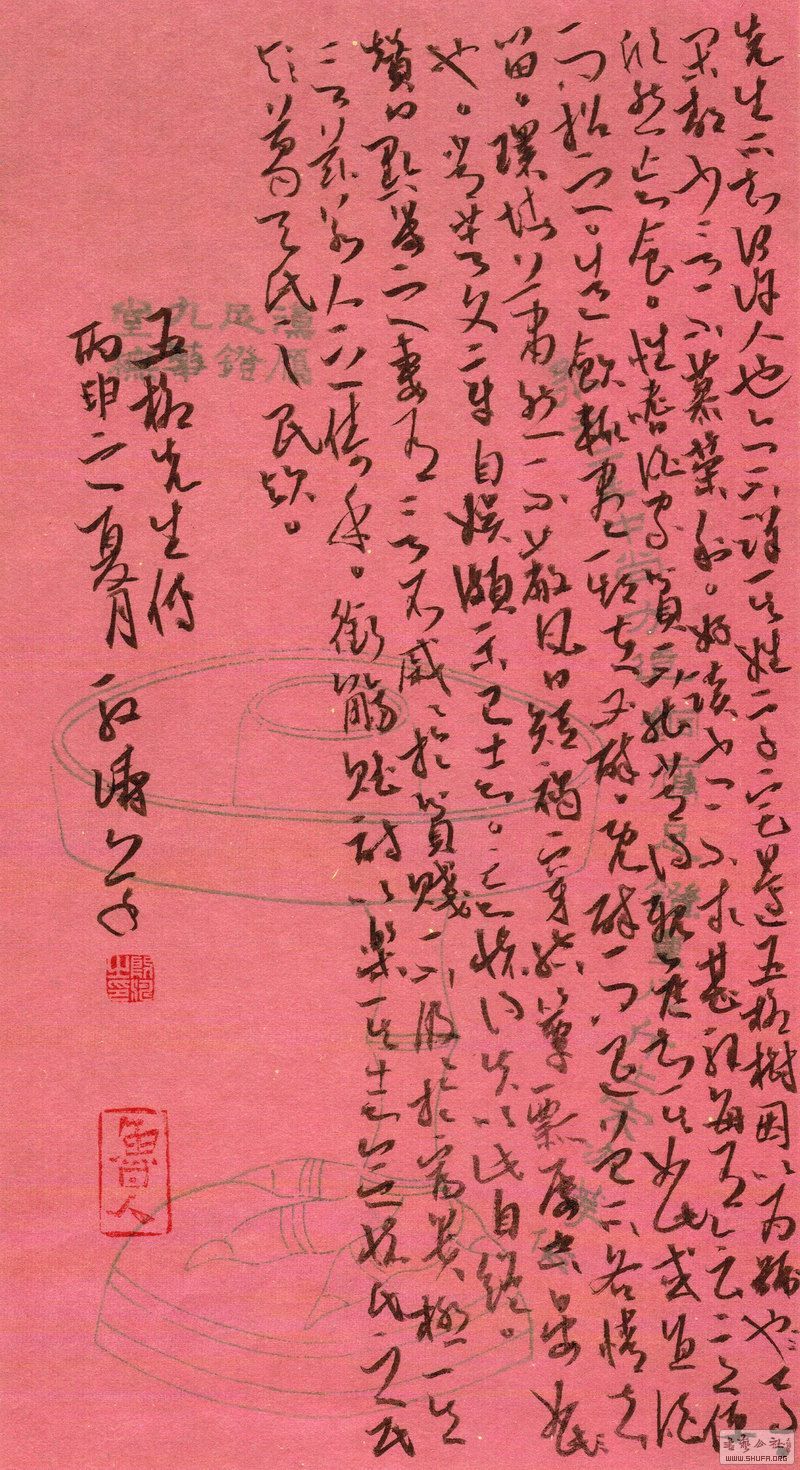 先生不知何許人也亦不詳其姓字宅邊五柳樹因以為號也
閑靜少言不慕榮利。好讀書不求甚解每有會意便
欣然忘食。性嗜酒家貧不能常得親舊知其如此或置酒
而招之。造飲輒盡期在必醉。既醉而退曾不吝情去
留。環堵蕭然不蔽風日短褐穿結簞瓢屢空晏如
也。常著文章自娛頗示己志。忘懷得失以此自終。
贊曰黔婁之妻有言不戚戚於貧賤不汲汲於富貴極其
言茲若人之儔乎。銜觴賦詩以樂其志無懷氏之民
歟葛天氏之民歟。
五柳先生傳
丙申之夏月
魯人
WWW.SHUFA.ORG